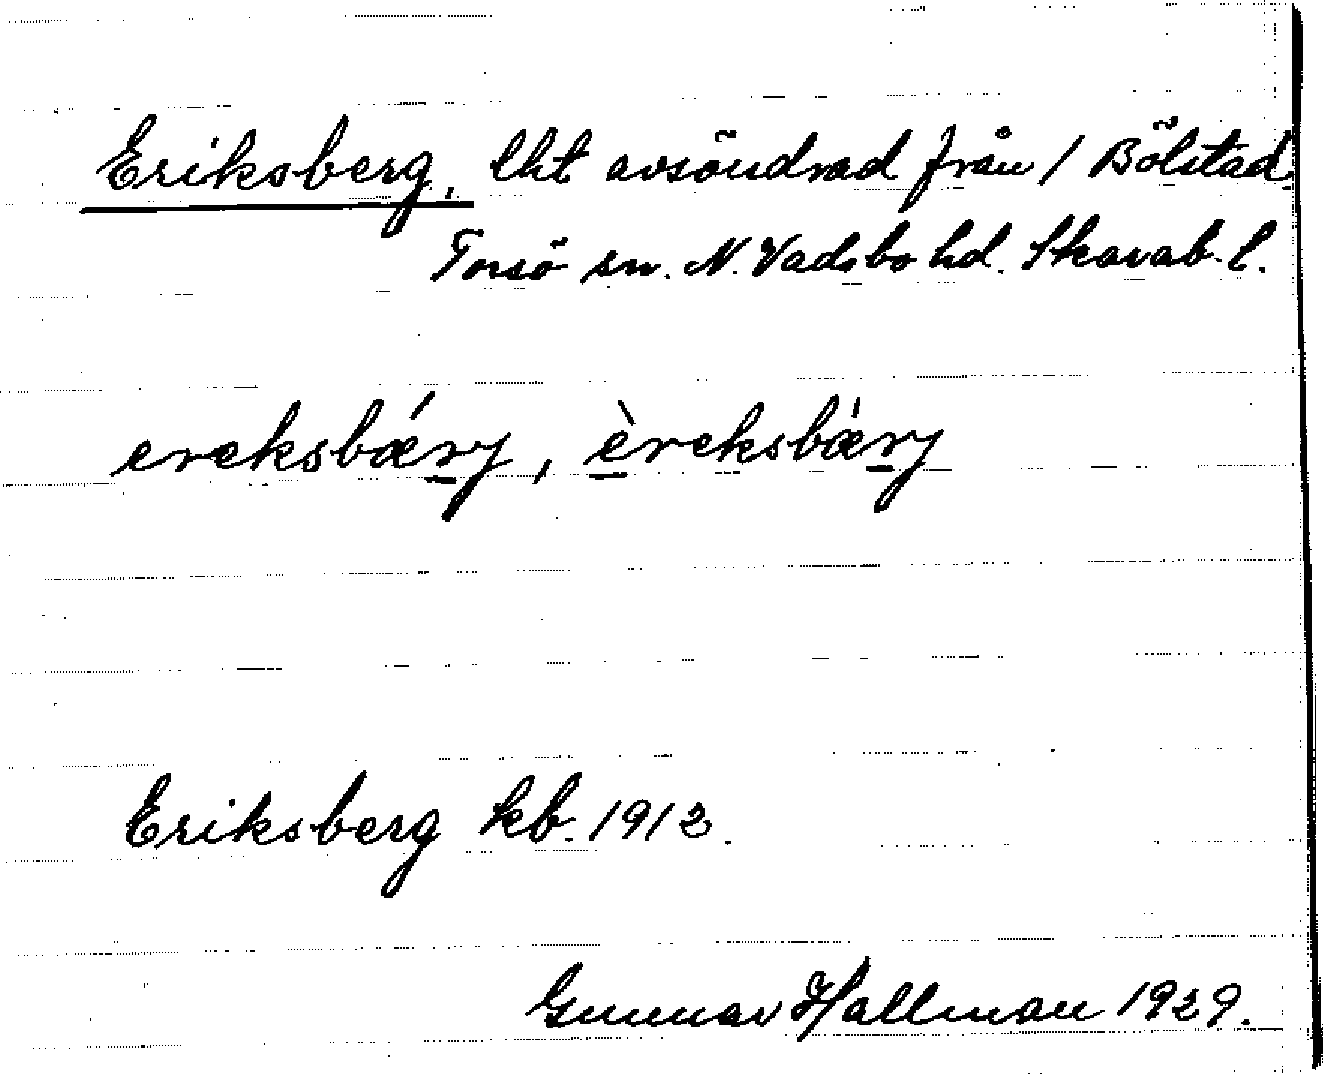 Eriksberg, lht avsöndrad från / Bölstad.
Torsö sn. N. Vadsbo hd. Skarab. l.
ereksbǽrj, èreksbæ̀rj
Eriksberg kb. 1912.
Gunnar Hallman 1929.